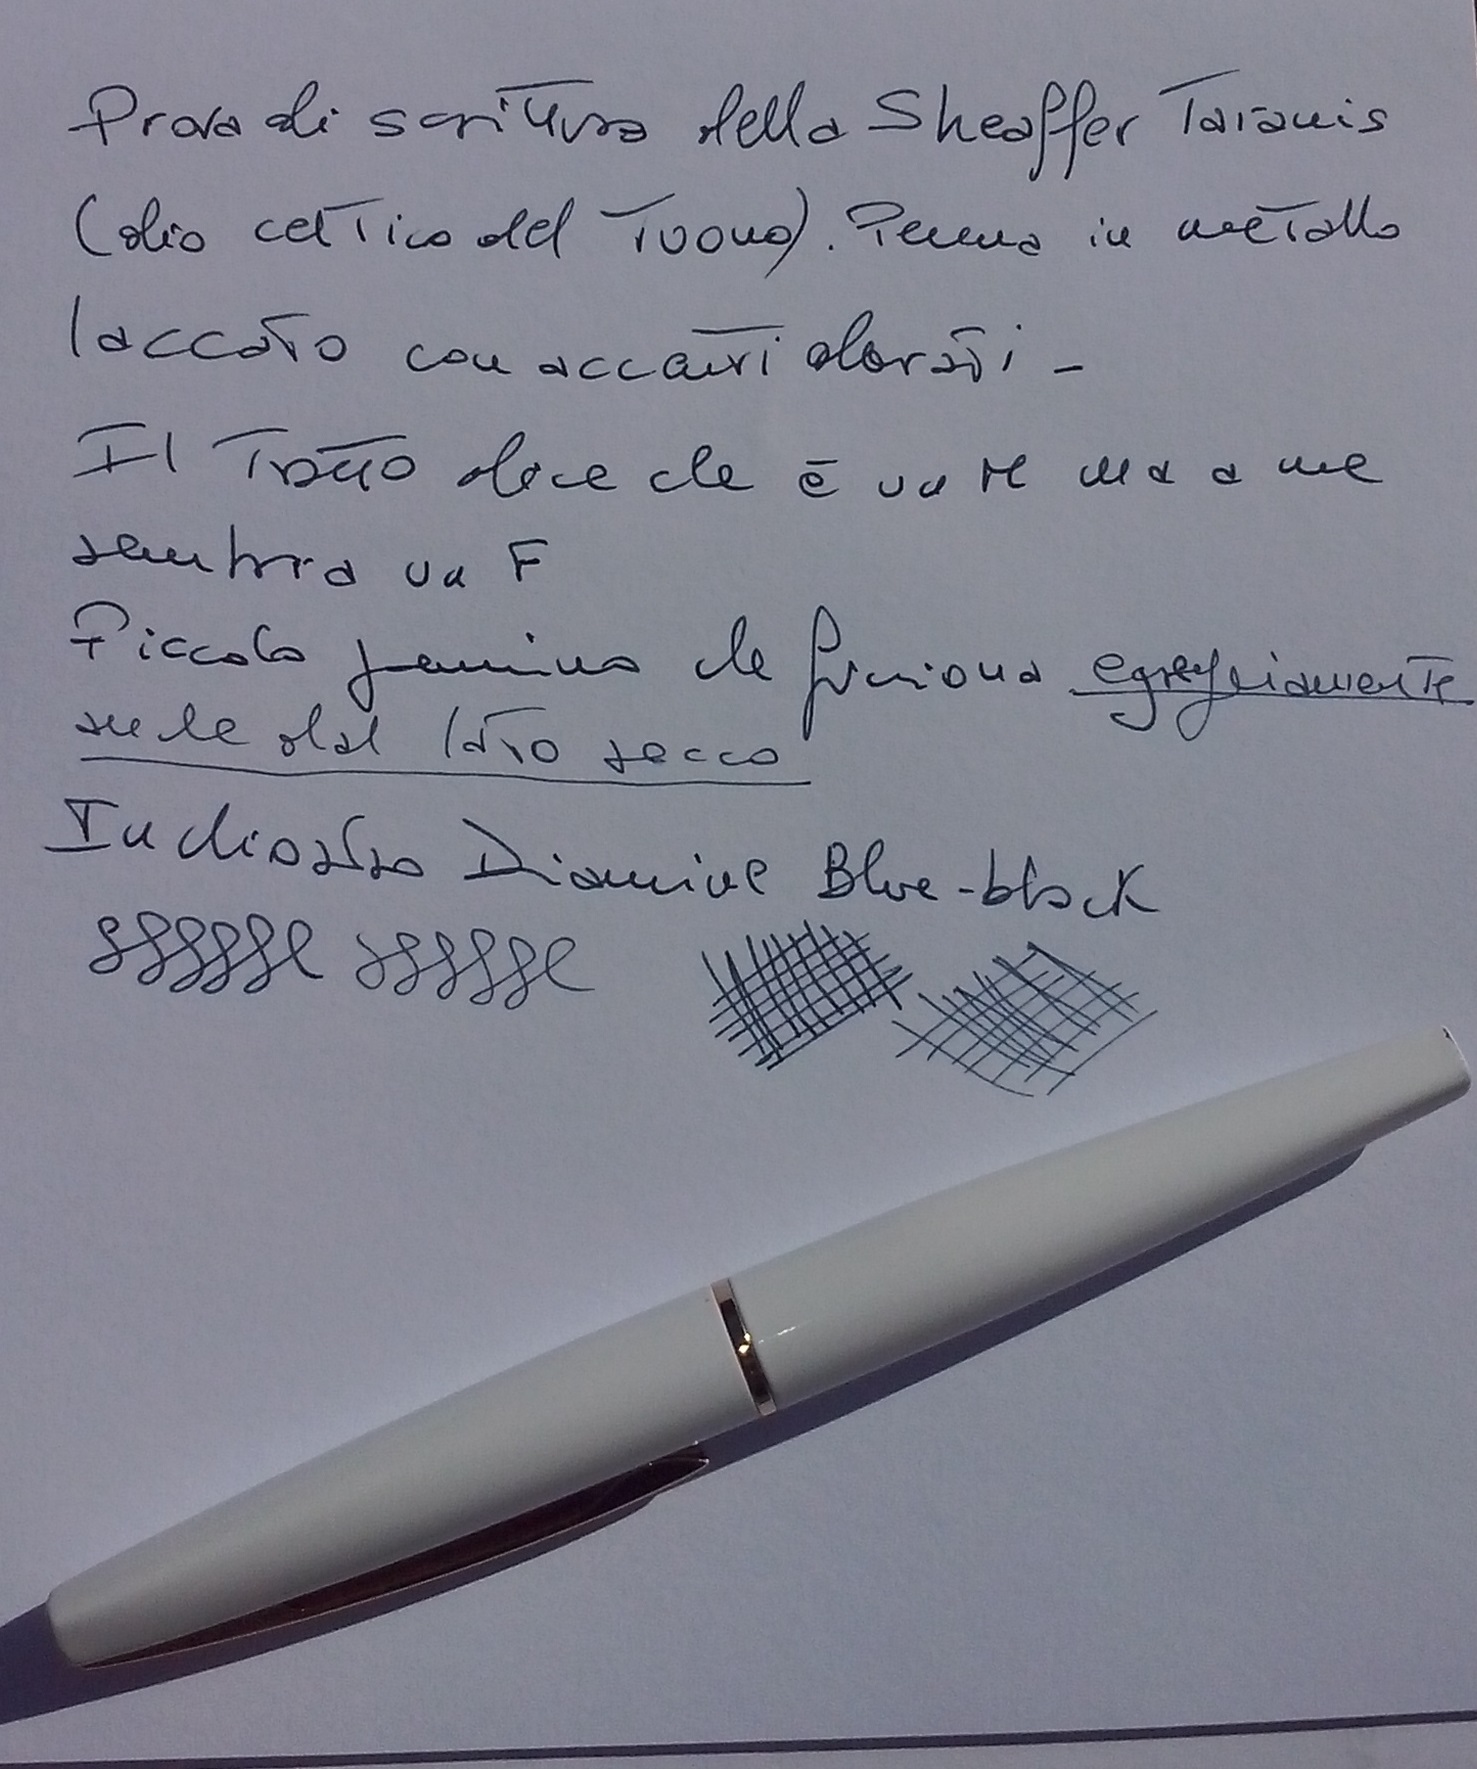 Prova di scrittura della Sheaffer Taranis
(dio celtico del Tuono). Penna in metallo
laccato con accenti dorati -
Il Tratto dice che è un M ma a me
sembra un F
Piccolo pennino che funziona egregiamente
anche dal lato secco
Inchiostro Diamine Blue-black